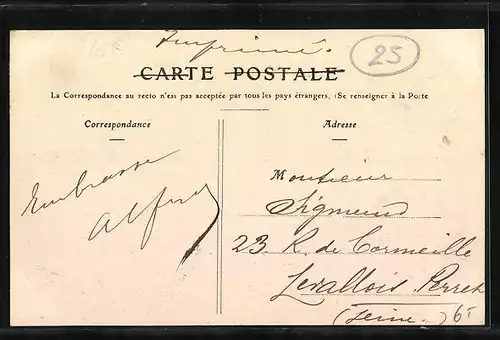 Imprimé.
25
CARTE POSTALE
La Correspondance au recto n'est pas acceptée par tous les pays étrangers, (Se renseigner à la Poste
Correspondance
Adresse
Embrasse
Alfred
Monsieur
Sigmund
23 R. de Cormeille
Levallois Perret
(Seine.)